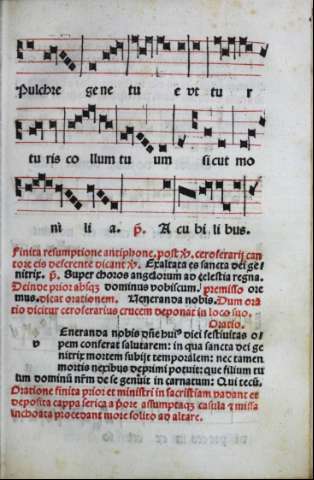 Pulchre gene tu e vt tu r
tu ris co llum tu um si cut mo
ni li a. p̄. A cu bi li bus.
Finita resumptione antiphone, post ℣. ceroferarij can
tore eis deferente dicant ℣. Exaltata es sancta dei ge
nitrix. p̄. Super choros angelorum ad celestia regna.
Deinde prior absq; dominus vobiscum. premisso ore
mus. dicat orationem. Veneranda nobis. Dum ora
tio dicitur ceroferarius crucem deponat in loco suo.
Oratio.
v Eneranda nobis dñe hui⁹ diei festiuitas o
pem conferat salutarem: in qua sancta dei ge
nitrix mortem subijt temporalem: nec tamen
mortis nexibus deprimi potuit: que filium tu
um dominũ nr̄m de se genuit in carnatum: Qui tecũ.
Oratione finita prior et ministri in sacristiam vadant et
deposita cappa serica a p̄ore assumptaq; casula ⁊ missa
inchoata procedant more solito ad altare.